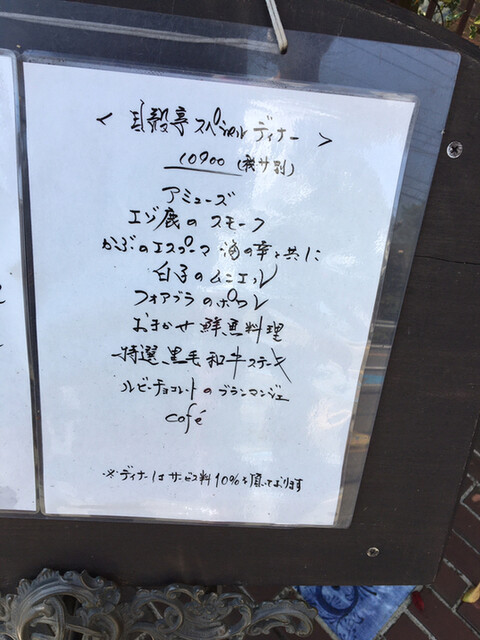 < 貝殻亭 スペシャル ディナー >
10900 (税サ別)
アミューズ
エゾ鹿の スモーク
かぶのエスプーマ 海の幸と共に
白子のムニエル
フォアグラのポワレ
おまかせ 鮮魚料理
特選黒毛和牛ステーキ
ルビーチョコレートのブランマンジェ
café
※ディナーはサービス料10%を頂いております